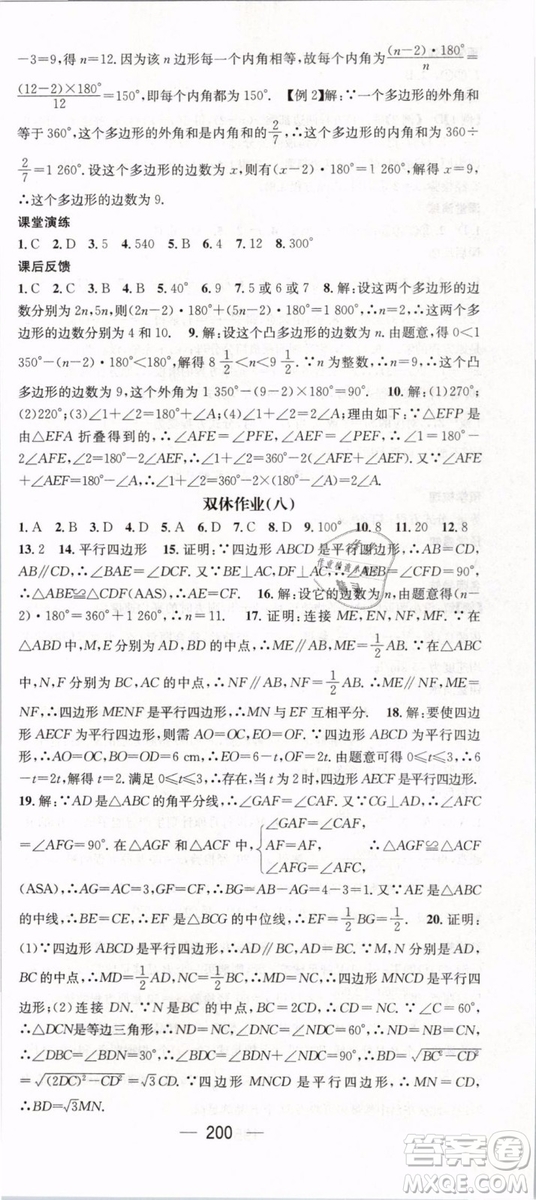 -3=9，得 n=12. 因为该 n 边形每一个内角相等，故每个内角为 (n-2)·180°/n =
(12-2)×180°/12 =150°，即每个内角都为 150°. 【例 2】解：∵多边形的外角和
等于 360°，这个多边形的外角和是内角和的 2/7，∴这个多边形的内角和为 360÷
2/7=1 260°. 设这个多边形的边数为 x，则有(x-2)·180°=1 260°，解得 x=9，
∴这个多边形的边数为 9.
课堂演练
1. C 2. D 3. 5 4. 540 5. B 6. 4 7. 12 8. 300°
课后反馈
1. C 2. C 3. B 4. B 5. 40° 6. 9 7. 5 或 6 或 7 8. 解：设这两个多边形的边
数分别为 2n，5n，则(2n-2)·180°+(5n-2)·180°=1 800°，∴n=2，∴这两个
多边形的边数分别为 4 和 10. 9. 解：设这个凸多边形的边数为 n. 由题意，得 0<1
350°-(n-2)·180°<180°，解得 8 1/2<n<9 1/2. ∵n 为整数，∴n=9，∴这个凸
多边形的边数为 9，这个外角为 1 350°-(9-2)×180°=90°. 10. 解：(1)270°；
(2)220°；∠1+∠2=180°+∠A；(3)∠1+∠2=2∠A；理由如下：∵△EFP 是
由△EFA 折叠得到的，∴∠AFE=∠PFE，∠AEF=∠PEF，∴∠1=180°-
2∠AFE，∠2=180°-2∠AEF，∴∠1+∠2=360°-2(∠AFE+∠AEF). 又∵∠AFE
+∠AEF=180°-∠A，∴∠1+∠2=360°-2(180°-∠A)=2∠A.
双休作业(八)
1. A 2. B 3. D 4. C 5. D 6. D 7. C 8. D 9. 100° 10. 8 11. 20 12. 8
13. 2 14. 平行四边形 15. 证明：∵四边形 ABCD 是平行四边形，∴AB=CD，
AB∥CD，∴∠BAE=∠DCF. 又∵BE∥DF，∴∠AEB=∠CFD=90°，
∴△ABE≌△CDF(AAS)，∴AE=CF. 16. 解：设它的边数为 n，由题意得(n-2)
·180°=360°+1 260°，∴n=11. 17. 证明：连接 ME，EN，NF，FM. ∵在
△ADB 中，M，E 分别为 AD，BD 的中点，∴ME∥AB，ME=1/2AB. ∵在△ABC
中，N，F 分别为 BC，AC 的中点，∴NF∥AB，NF=1/2AB，∴ME∥NF，ME=
NF，∴四边形 MENF 是平行四边形，∴MN 与 EF 互相平分. 18. 解：要使四边形
AECF 为平行四边形，则需 AO=OC，EO=OF. ∵四边形 ABCD 为平行四边形，
∴BO=OD=6(cm)，∴EO=6-t，OF=2t，∴6-t=2t. 根据题意可得 0≤t≤3，
6-t=2t，解得 t=2. 满足 0≤t≤3，∴当 t=2 时，四边形 AECF 是平行四边形.
19. 解：∵AD 是△ABC 的角平分线，∴∠GAF=∠CAF. 又∵CG⊥AD，∴∠AFC
=∠AFG=90°. 在△AGF 和△ACF 中，{∠GAF=∠CAF，AF=AF，∠AFG=∠AFC，∴△AGF≌△ACF
(ASA)，∴AG=AC=3，GF=CF，∴BG=AB-AG=4-3=1. 又∵AE 是△ABC
的中线，∴BE=CE，∴EF 是△BCG 的中位线，∴EF=1/2BG=1/2. 20. 证明：
(1)∵四边形 ABCD 是平行四边形，∴AD=BC，AD∥BC. ∵M，N 分别是 AD，
BC 的中点，∴MD=1/2AD，NC=1/2BC，∴MD=NC，∴四边形 MNCD 是平行四
边形；(2)连接 DN. ∵N 是 BC 的中点，BC=2CD，∴CD=NC. ∵∠C=60°，
∴△DCN是等边三角形，∴∠NDC=∠DNC=60°，ND=NC. ∵ND=NC=BN，
∴∠DBC=∠BDN=30°，∴∠BDC=∠BDN+∠NDC=90°，∴BD=√(BC²-CD²)
=√((2DC)²-CD²)=√3CD. ∵四边形 MNCD 是平行四边形，∴MN=CD，
∴BD=√3MN.
200
答案圈
MXQE.COM